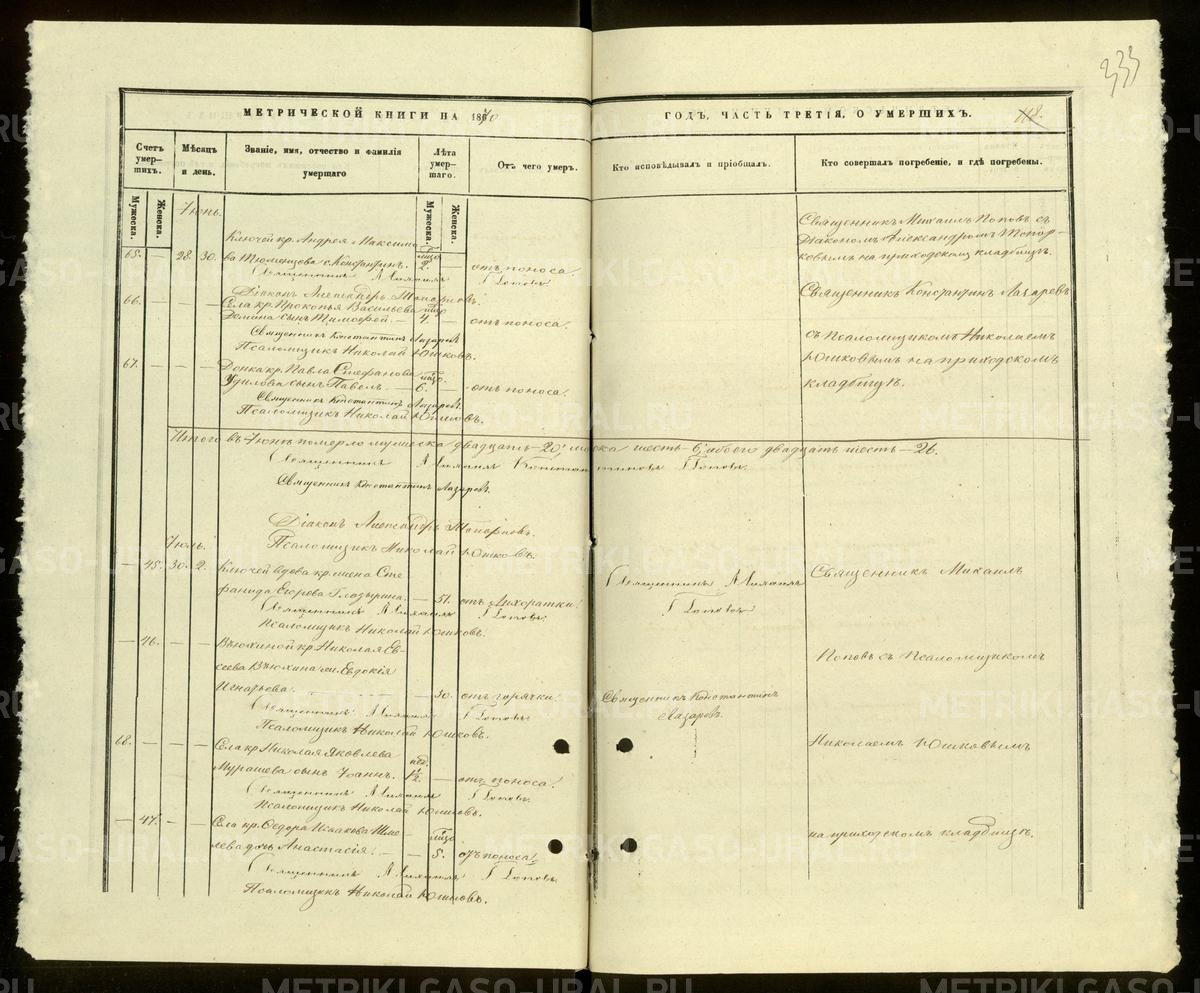 333
МЕТРИЧЕСКОЙ КНИГИ НА 1870
ГОДЪ, ЧАСТЬ ТРЕТІЯ, О УМЕРШИХЪ.
118.
Счетъ умер-шихъ.
Мѣсяцъ и день.
Званіе, имя, отчество и фамилія умершаго
Лѣта умер-шаго.
Отъ чего умеръ.
Кто исповѣдывалъ и пріобщалъ.
Кто совершалъ погребеніе, и гдѣ погребены.
Мужеска.
Женска.
Мужеска.
Женска.
Іюнь.
Ключей кр. Андрея Максимо
65. — 28. 30. ва Тюменцова с. Константинъ. 2. отъ поноса.
Священникъ Михаилъ Поповъ
Діаконъ Александръ Топорковъ.
Священникъ Михаилъ Поповъ съ
Діакономъ Александромъ Топор-
ковымъ на приходскомъ кладбищѣ.
66. — — — Села кр. Прокопья Васильева
Демина сынъ Тимофей. — 4. — отъ поноса.
Священникъ Константинъ Лазаревъ
Псаломщикъ Николай Юшковъ.
Священникъ Константинъ Лазаревъ
съ Псаломщикомъ Николаемъ
Юшковымъ на приходскомъ
кладбищѣ.
67. — — — кр. Павла Стефанова
сынъ Павелъ. — 6. — отъ поноса.
Священникъ Константинъ Лазаревъ
Псаломщикъ Николай Юшковъ.
Итого въ Іюнѣ померло мужеска двадцать — 20, женска шесть — 6, обоего двадцать шесть — 26.
Священникъ Михаилъ Константиновъ Поповъ.
Священникъ Константинъ Лазаревъ.
Діаконъ Александръ Топорковъ.
Псаломщикъ Николай Юшковъ.
Іюль.
— 45. 30. 2. Ключей вдова кр. жена Сте
фанида Егорова Гладырина. — 51. отъ лихоратки.
Священникъ Михаилъ Поповъ
Псаломщикъ Николай Юшковъ.
Священникъ Михаилъ
Поповъ
Священникъ Михаилъ
— 46. — — кр. Николая Ев-
сеева Вьюхина жена Евдокія
Игнатьева. — 30. отъ горячки.
Священникъ Михаилъ Поповъ
Псаломщикъ Николай Юшковъ.
Священникъ Константинъ
Лазаревъ.
Поповъ съ Псаломщикомъ
68. — — — Села кр. Николая Яковлева нед.
Мурашева сынъ Іоаннъ. 1½. — отъ поноса.
Священникъ Михаилъ Поповъ
Псаломщикъ Николай Юшковъ.
Николаемъ Юшковымъ
— 47. — — Села кр. Федора Исаакова Шме-
лева дочь Анастасія. — — 5. отъ поноса.
Священникъ Михаилъ Поповъ
Псаломщикъ Николай Юшковъ.
на приходскомъ кладбищѣ.
METRIKI.GASO-URAL.RU